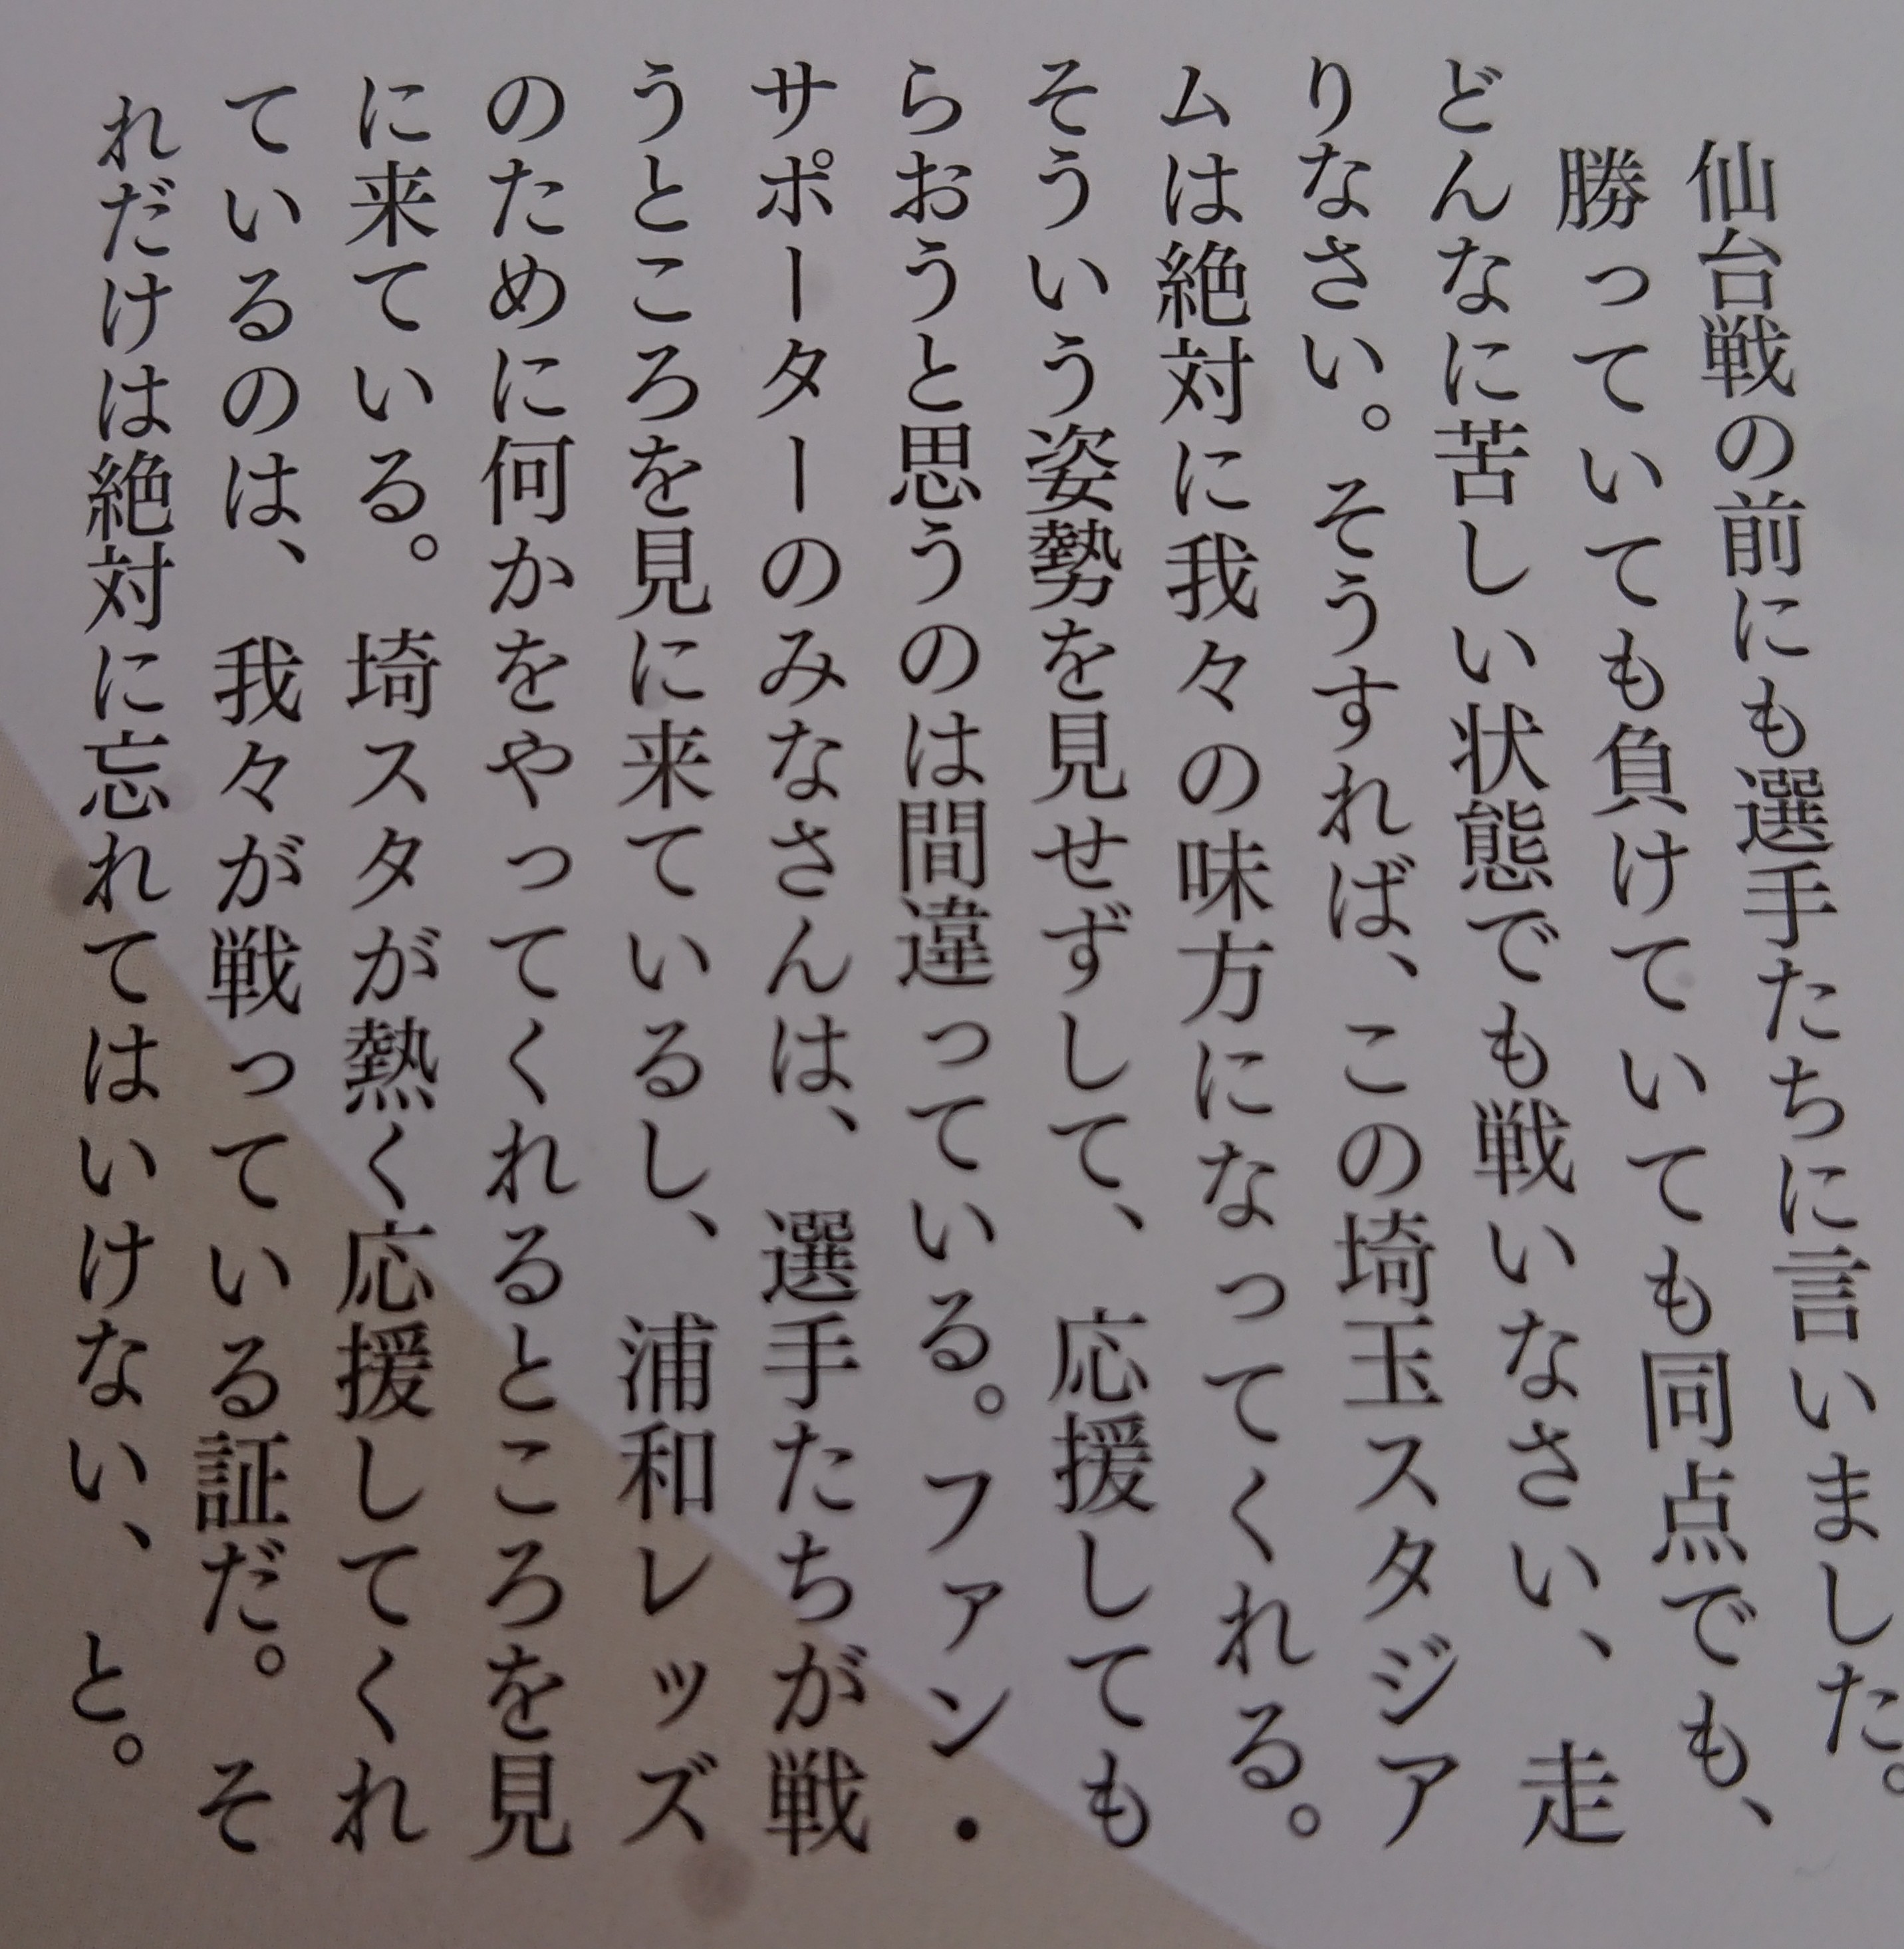 仙台戦の前にも選手たちに言いました。
勝っていても負けていても同点でも、
どんなに苦しい状態でも戦いなさい、走
りなさい。そうすれば、この埼玉スタジア
ムは絶対に我々の味方になってくれる。
そういう姿勢を見せずして、応援しても
らおうと思うのは間違っている。ファン・
サポーターのみなさんは、選手たちが戦
うところを見に来ているし、浦和レッズ
のために何かをやってくれるところを見
に来ている。埼スタが熱く応援してくれ
ているのは、我々が戦っている証だ。そ
れだけは絶対に忘れてはいけない、と。